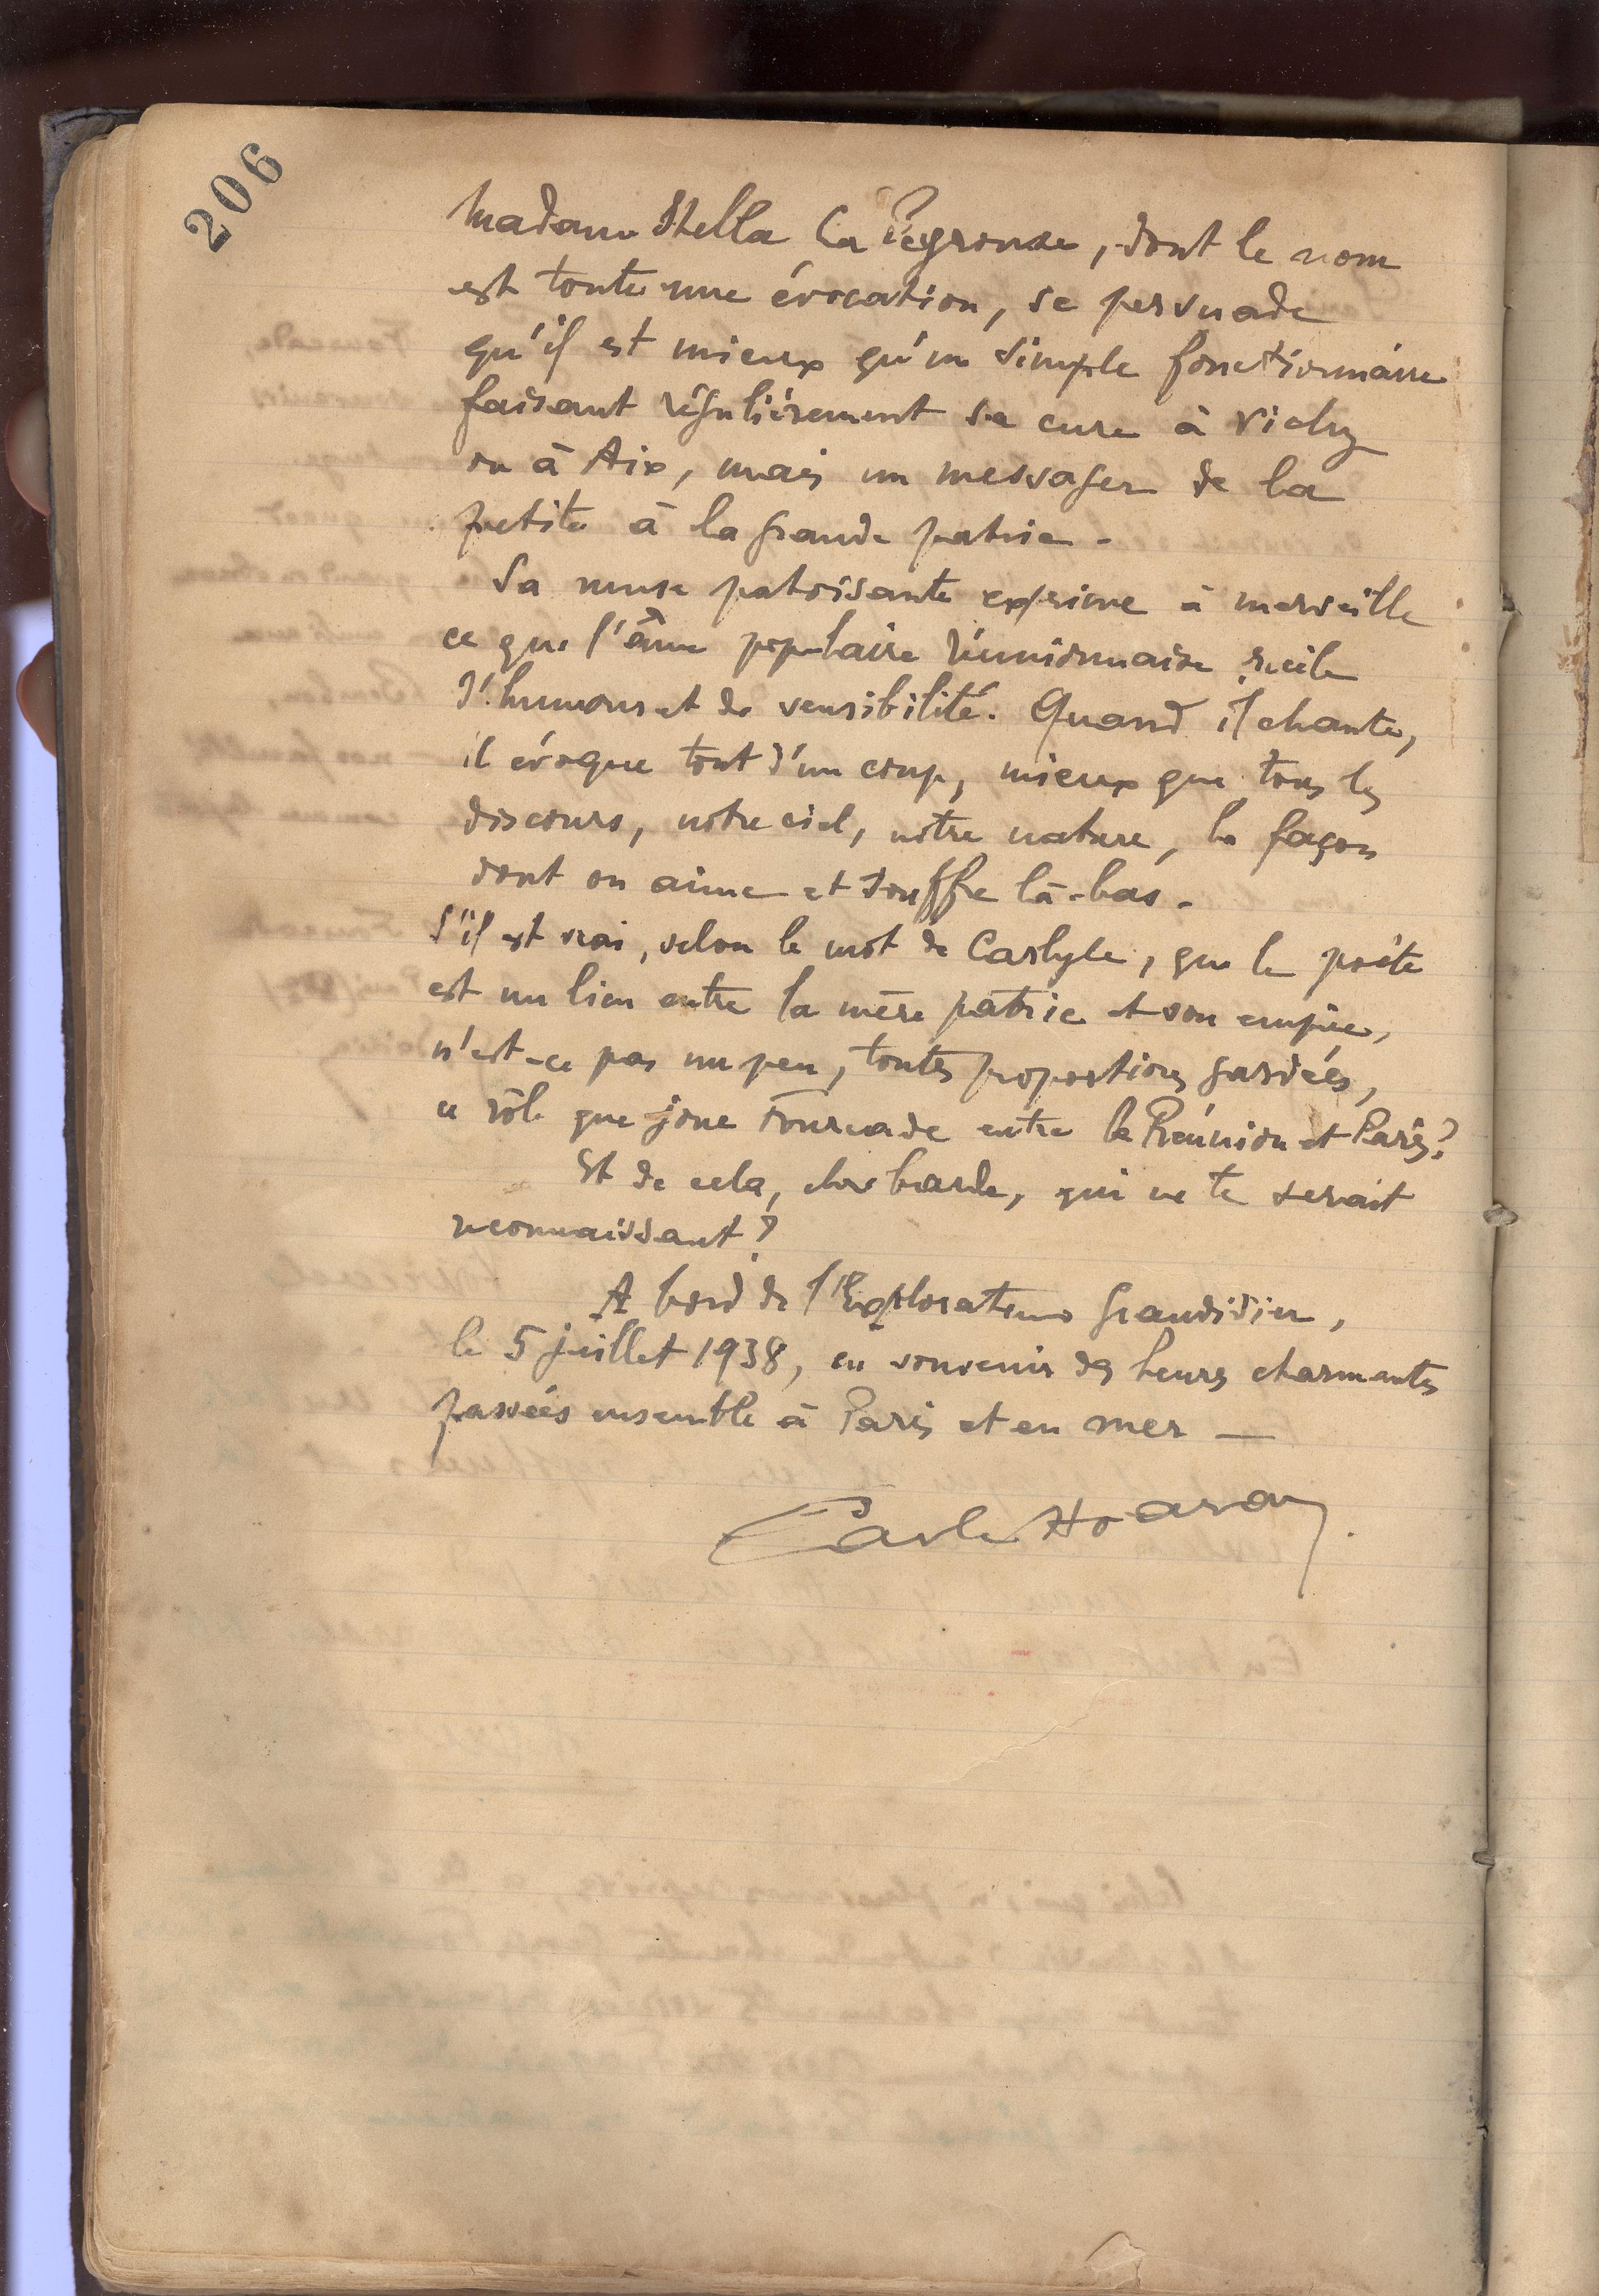 206
Madame Stella La Peyrouse, dont le nom
est toute une évocation, se persuade
qu'il est mieux qu'un simple fonctionnaire
faisant régulièrement sa cure à Vichy
ou à Aix, mais un messager de la
petite à la grande patrie.
Sa muse patoisante exprime à merveille
ce que l'âme populaire réunionnaise recèle
d'humour et de sensibilité. Quand il chante,
il évoque tout d'un coup, mieux que tous les
discours, notre ciel, notre nature, la façon
dont on aime et souffre là-bas.
S'il est vrai, selon le mot de Carlyle, que le poète
est un lien entre la mère patrie et son empire,
n'est-ce pas un peu, toutes proportions gardées,
ce rôle que joue Fourcade entre la Réunion et Paris?
Et de cela, cher barde, qui ne te serait
reconnaissant?
A bord de l'Explorateur Grandidier,
le 5 juillet 1938, en souvenir des heures charmantes
passées ensemble à Paris et en mer —